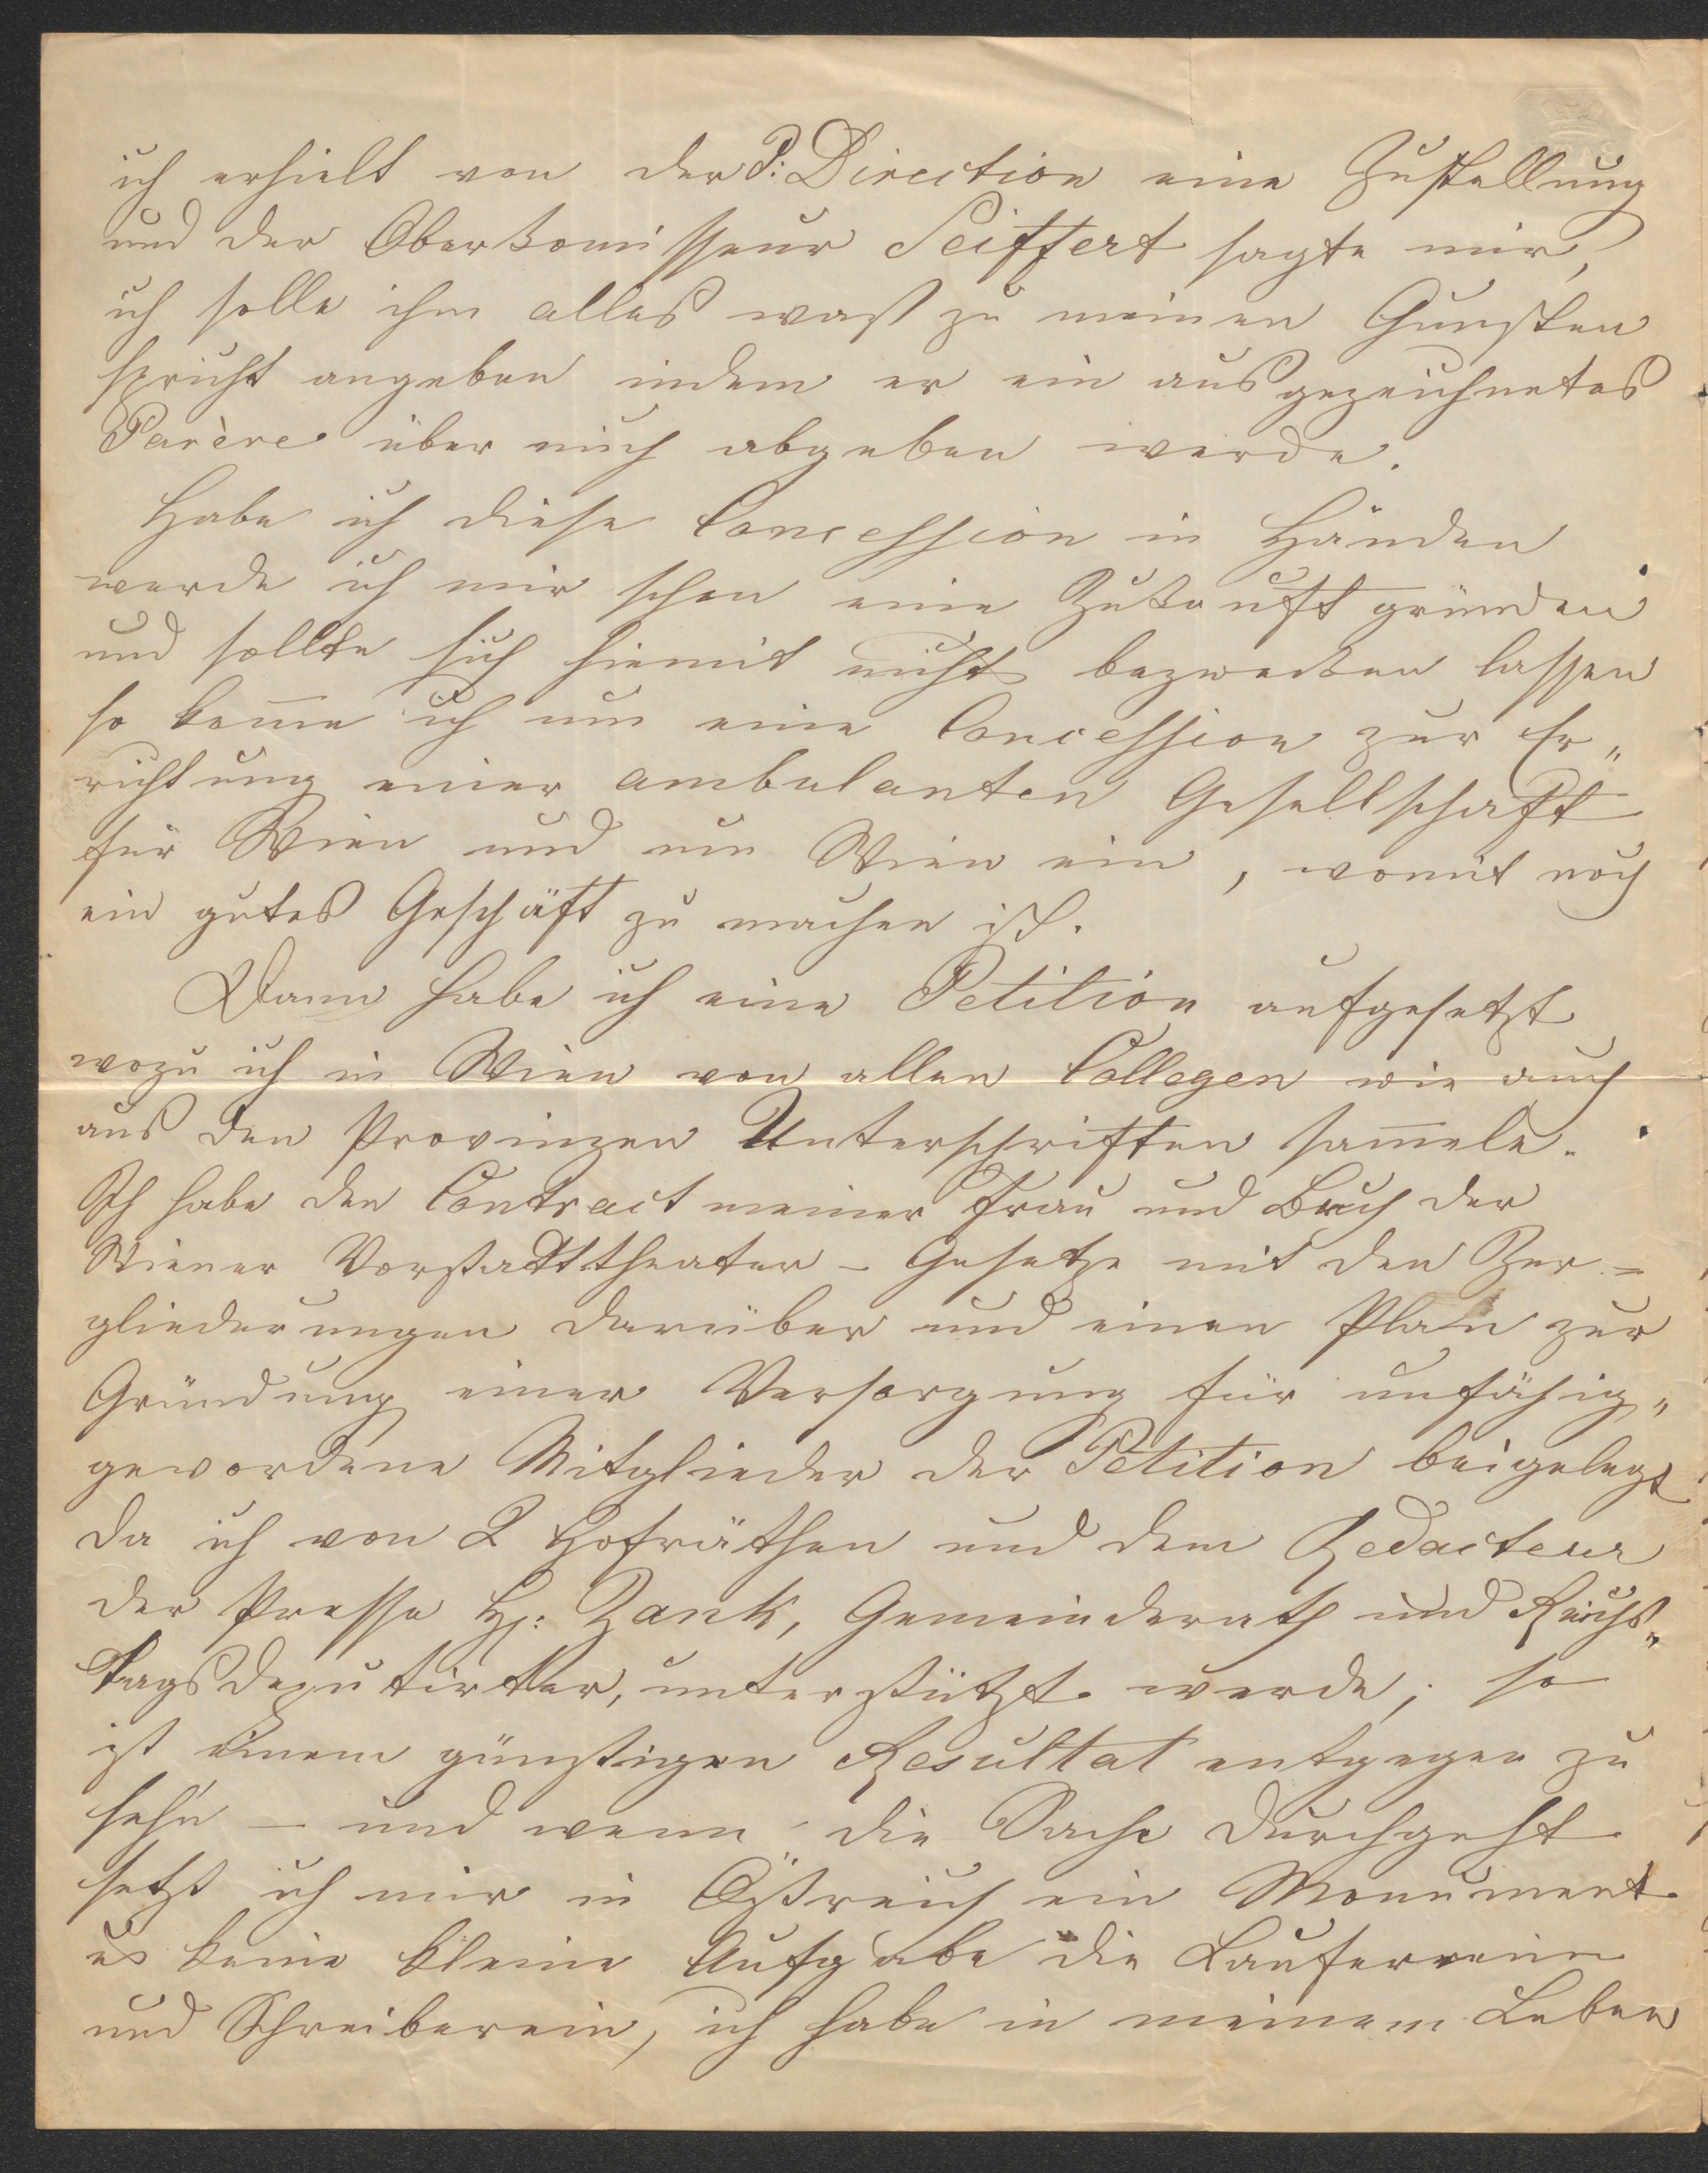 ich erhielt von der P: Direction eine Zustellung
und der Oberkomisseur Seiffert sagte mir,
ich solle ihm alles was zu meinen Gunsten
spricht angeben indem er ein ausgezeichnetes
Parère über mich abgeben werde.
Habe ich diese Concession in Händen
werde ich mir schon eine Zukunft gründen
und sollte sich hiemit nichts bezwecken lassen
so kom̅e ich um eine Concession zur Er„
richtung einer ambulanten Gesellschaft
für Wien und um Wien ein, womit noch
ein gutes Geschäft zu machen ist.
Dann habe ich eine Petition aufgesetzt
wozu ich in Wien von allen Collegen wie auch
aus den Provinzen Unterschriften sam̅ele.
Ich habe den Contract meiner Frau und Buch der
Wiener Vorstadttheater – Gesetze mit den Zer=
gliederungen darüber und einen Plan zur
Gründung einer Versorgung für unfähig„
gewordene Mitglieder der Petition beigelegt
da ich von 2 Hofräthen und dem Redacteur
der Presse H: Zank, Gemeinderath und Reichs„
tagsdeputirter, unterstützt werde; so
ist einem günstigen Resultat entgegen zu
seh'n – und wenn die Sache durchgeht
setzt ich mir in Östreich ein Monument
es keine kleine Aufgabe die Lauferrein
und Schreiberein, ich habe in meinem Leben